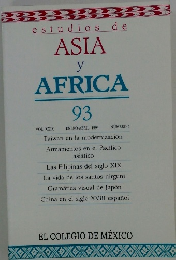 estudios de
ASIA
y
AFRICA
93
Taiwán en la modernización
Armamentos en el Pacífico
asiático
Las Filipinas del siglo XIX
La vida de los santos nigans
Gramática visual de Japón
China en el siglo XVIII español
EL COLEGIO DE MÉXICO